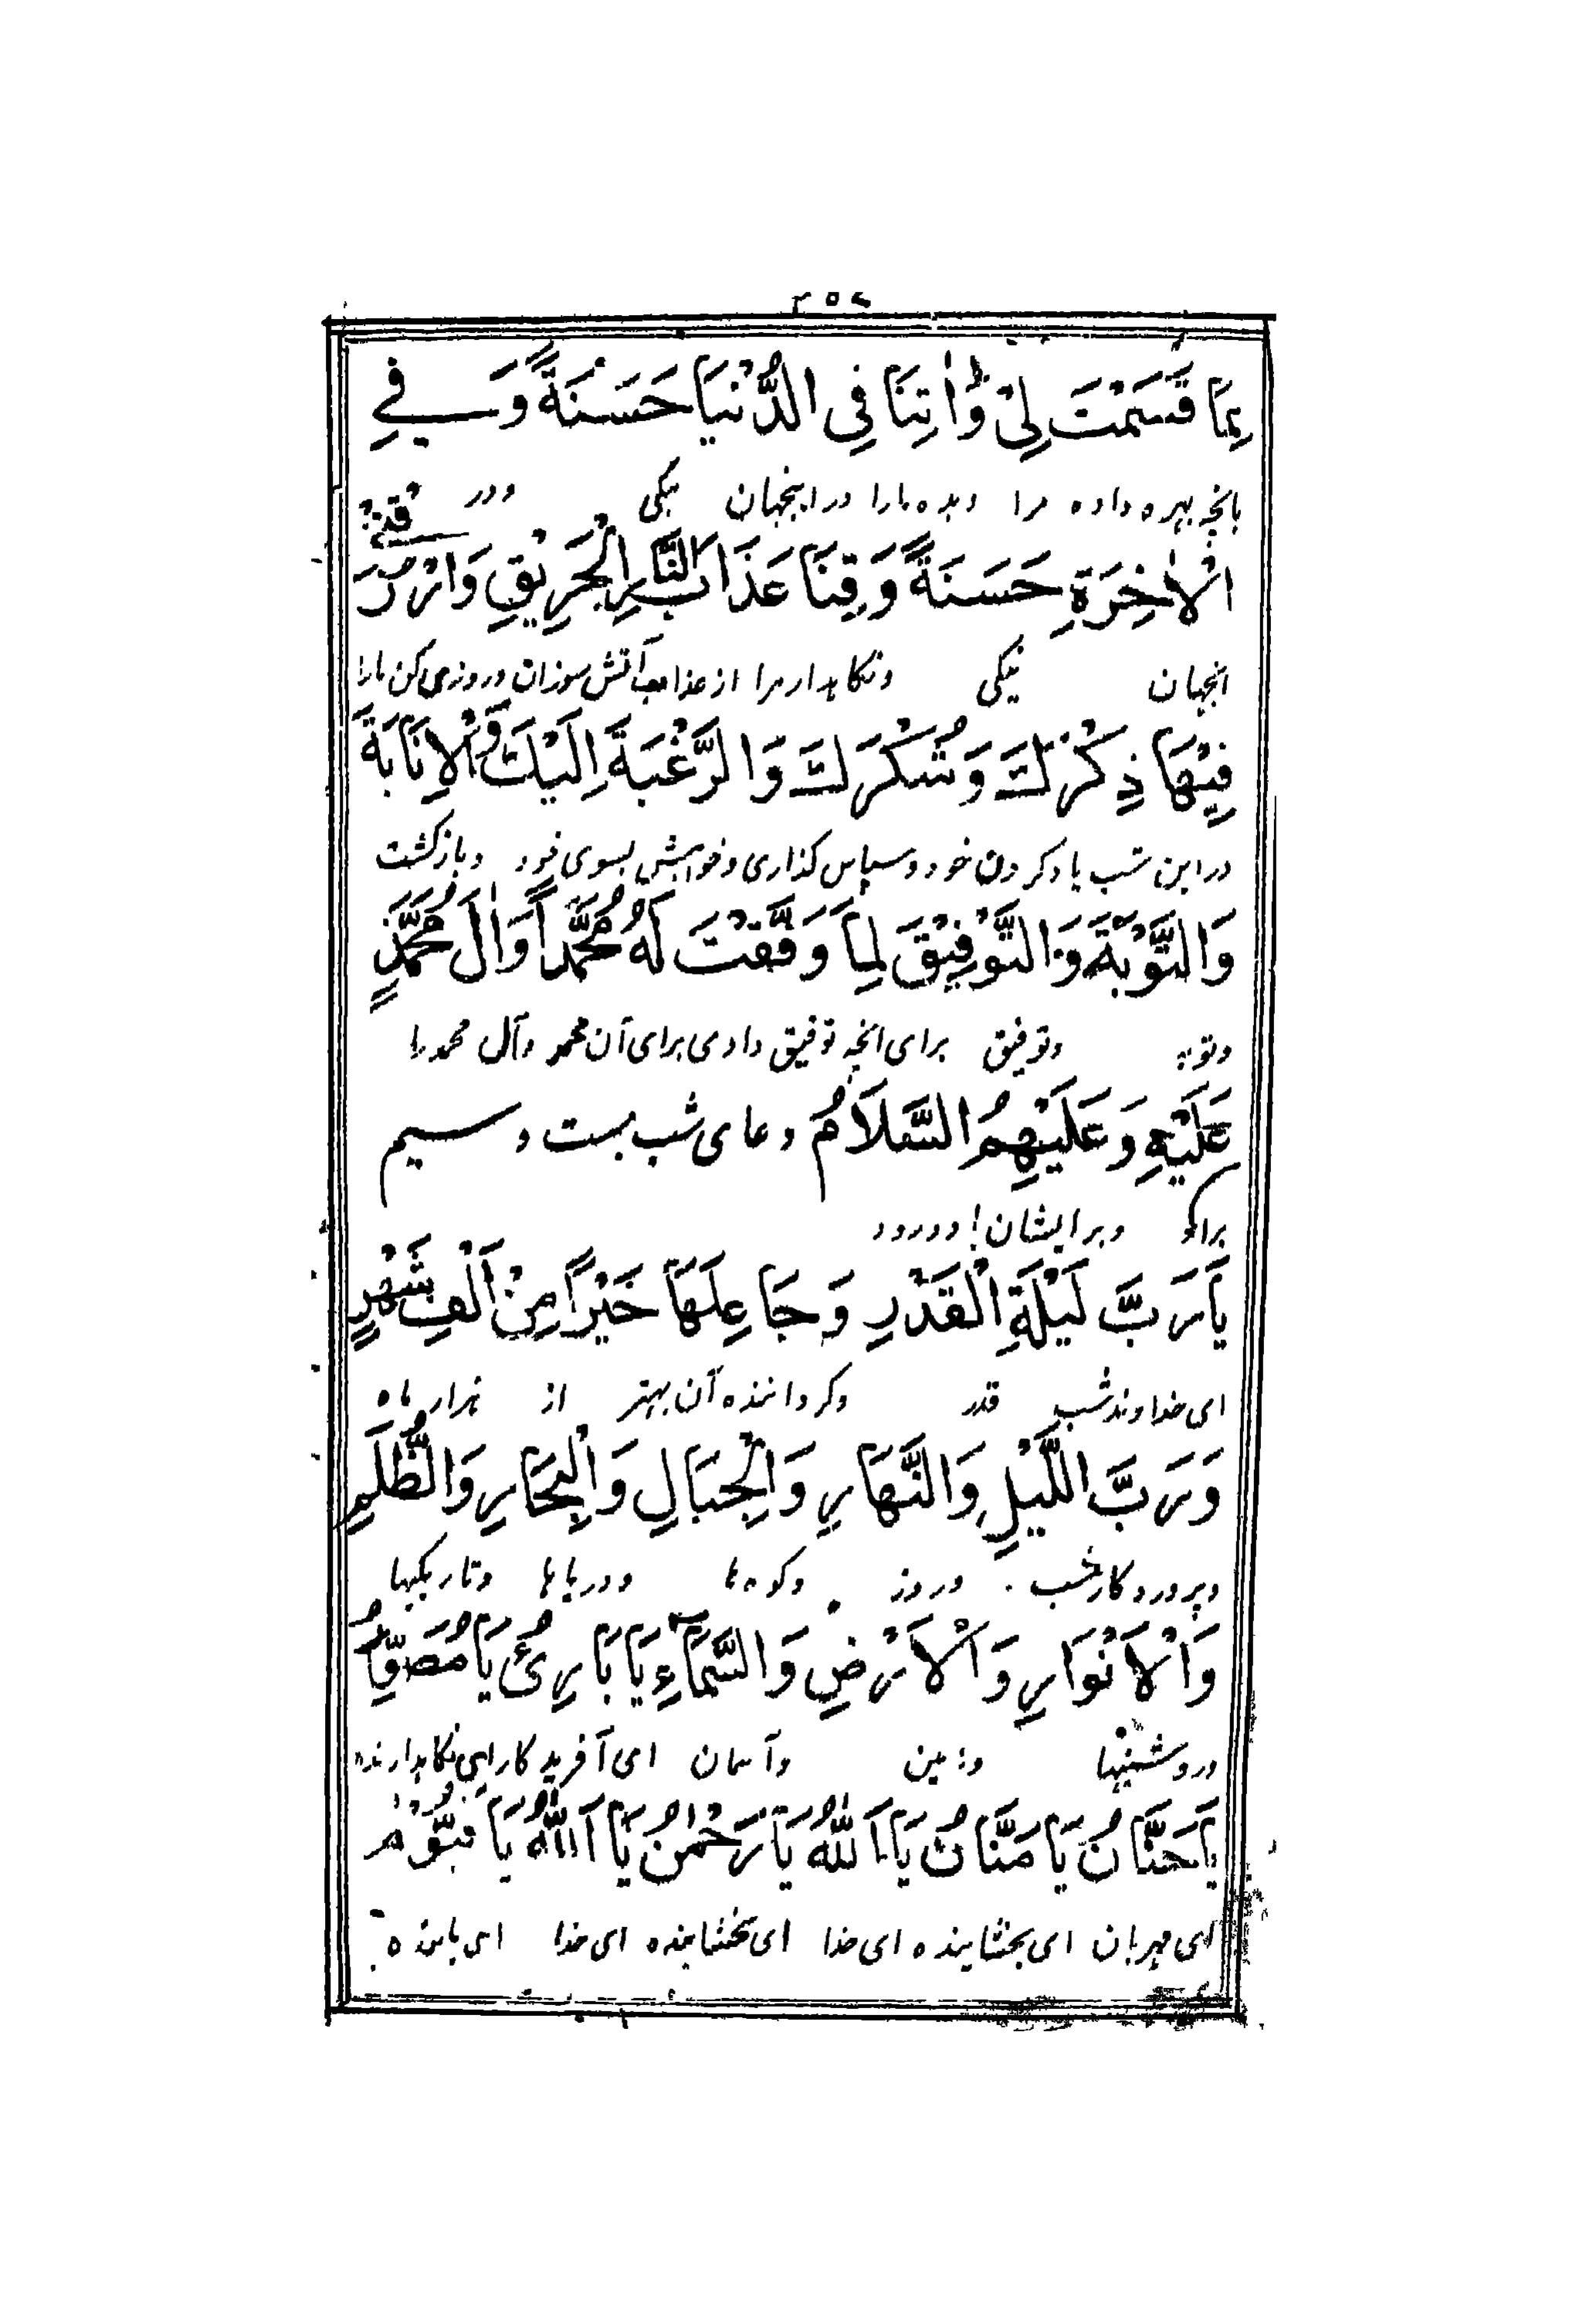 بِمَا قَسَمْتَ لِیْ وَاٰتِنَا فِی الدُّنْیَا حَسَنَةً وَ فِی
بانچه بهره داده مرا وبده مارا دراینجهان نیکی ودر
الْاٰخِرَةِ حَسَنَةً وَ قِنَا عَذَابَ النَّارِ الْحَرِیْقِ وَارْزُقْنِیْ
انجهان نیکی ونکاهدار مرا از عذاب آتش سوزان وروزی کن مارا
فِیْهَا ذِكْرَكَ وَ شُكْرَكَ وَالرَّغْبَةَ اِلَیْكَ وَالْاِنَابَةَ
دراین شب یاد کردن خود وسپاس کذاری وخواهش بسوی خود وبازکشت
وَالتَّوْبَةَ وَالتَّوْفِیْقَ لِمَا وَفَّقْتَ لَهُ مُحَمَّداً وَاٰلَ مُحَمَّدٍ
وتوبه وتوفیق برای انچه توفیق دادی برای آن محمد وآل محمد را
عَلَیْهِ وَ عَلَیْهِمُ السَّلَامُ دعای شب بست و سیم
براو وبرایشان درود
یَا رَبَّ لَیْلَةِ الْقَدْرِ وَ جَاعِلَهَا خَیْراً مِنْ اَلْفِ شَهْرٍ
ای خداوند شب قدر وکرداننده آن بهتر از هزار ماه
وَ رَبَّ اللَّیْلِ وَالنَّهَارِ وَالْجِبَالِ وَالْبِحَارِ وَالظُّلَمِ
وپروردکار شب وروز وکوه ها ودریاها وتاریکیها
وَالْاَنْوَارِ وَالْاَرْضِ وَالسَّمَآءِ یَا بَارِئُ یَا مُصَوِّرُ
وروشنیها وزمین وآسمان ای آفریدکار ای نکاهدارنده
یَا حَنَّانُ یَا مَنَّانُ یَا اَللّٰهُ یَا رَحْمٰنُ یَا اَللّٰهُ یَا قَیُّوْمُ
ای مهربان ای بخشاینده ای خدا ای بخشاینده ای خدا ای پاینده